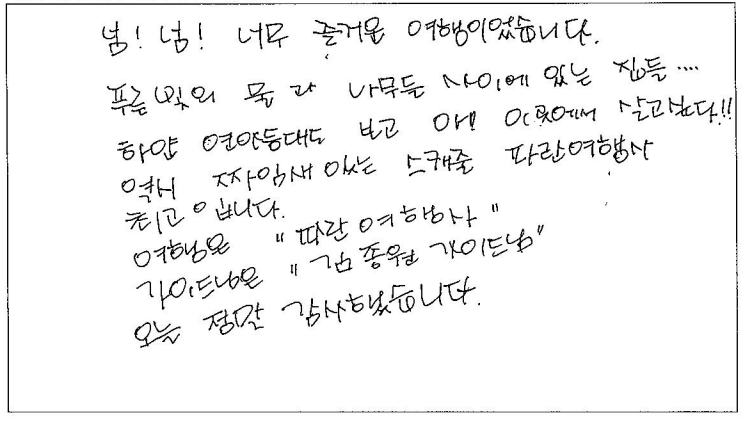 넘! 넘! 너무 즐거운 여행이었습니다.
푸른빛의 물과 나무들 사이에 있는 집들....
하얀 연안등대도 보고 아! 이곳에서 살고싶다!!
역시 짜임새 있는 스케줄 파란여행사
최고 입니다.
여행은 "파란여행사"
가이드님은 "김종원 가이드님"
오늘 정말 감사했습니다.